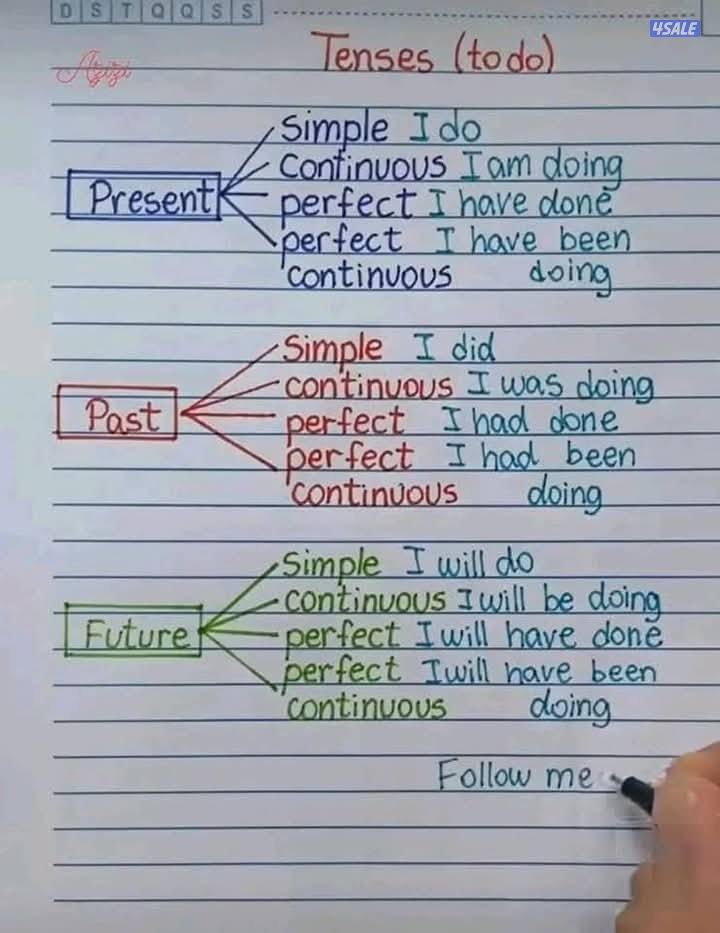 D S T Q Q S S
4SALE
Tenses (to do)
Azizi
Simple I do
Continuous I am doing
Present
perfect I have done
perfect I have been
continuous doing
Simple I did
continuous I was doing
Past
perfect I had done
perfect I had been
continuous doing
Simple I will do
continuous I will be doing
Future
perfect I will have done
perfect I will have been
continuous doing
Follow me